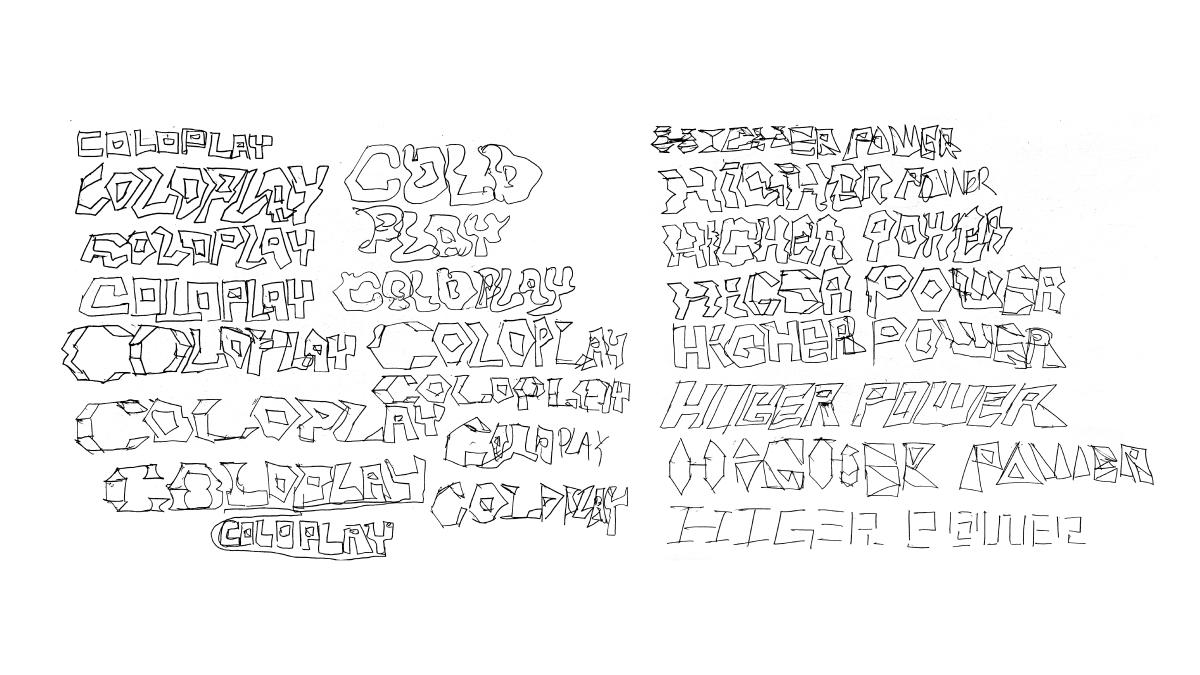 COLDPLAY
COLDPLAY
COLDPLAY
COLDPLAY
COLDPLAY
COLDPLAY
COLDPLAY
COLDPLAY
COLD
PLAY
COLDPLAY
COLDPLAY
COLDPLAY
COLDPLAY
COLDPLAY
HIGHER POWER
HIGHER POWER
HIGHER POWER
HIGER POWER
HIGHER POWER
HIGER POWER
HIGHER POWER
HIGER POWER